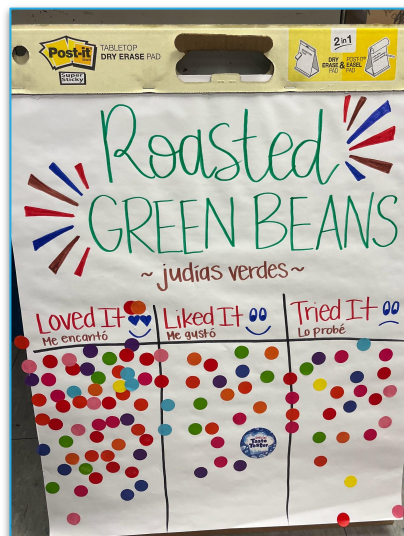 Post-it
Super
Sticky
TABLETOP
DRY ERASE PAD
2 in 1
DRY
ERASE
PAD
&
POST-IT®
EASEL
PAD
Roasted
GREEN BEANS
~ judías verdes ~
Loved It
Me encantó
Liked It
Me gustó
Tried It
Lo probé
Taste
Tester